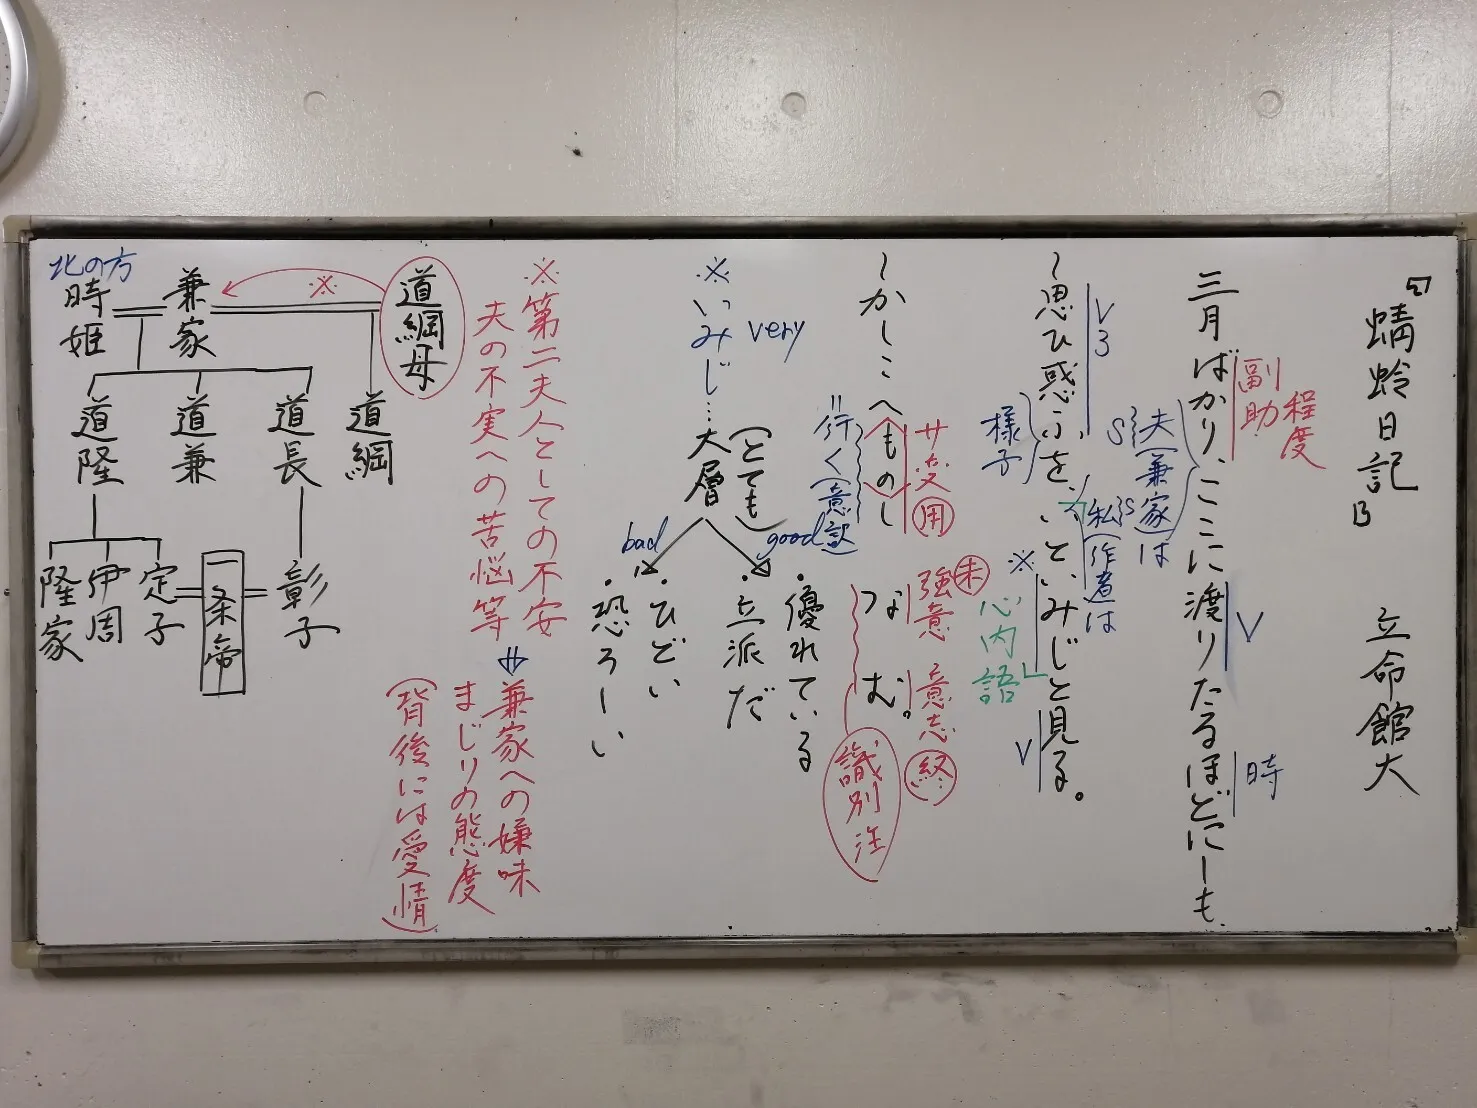 蜻蛉日記 B 立命館大
副助
程度
三月ばかり、ここに渡りたるほどにーも、
V
時
S 夫(兼家)は
S 私(作者)は
V3
〜思ひ惑ふを、いといみじと見る。
様子
※
V
心内語
〜かしこへものし
サ変用
=行く(意訳)
なむ。
強意未
意志終
識別注
※いみじ…大層(とても)
very
good
・優れている
・立派だ
bad
・ひどい
・恐ろしい
※第二夫人としての不安
夫の不実への苦悩等
兼家への嫌味
まじりの態度
(背後には愛情)
道綱母
※
兼家
北の方
時姫
道綱
道長
道兼
道隆
彰子
一条帝
定子
伊周
隆家